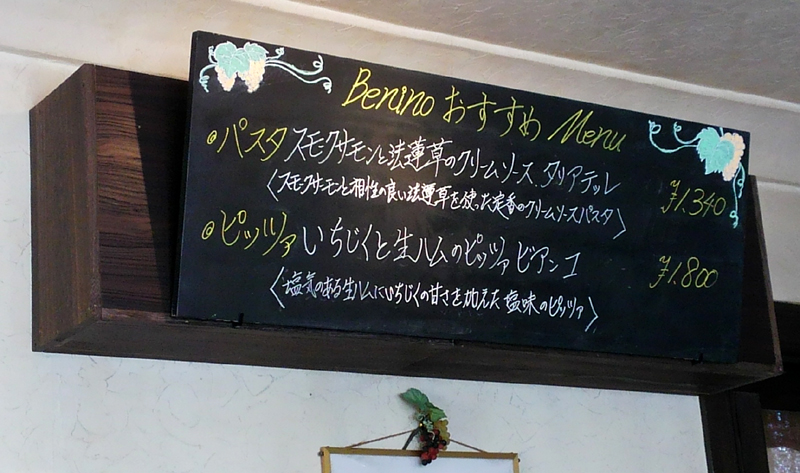 Benino おすすめ Menu
◎パスタ スモークサーモンと法蓮草のクリームソース、タリアテッレ ¥1.340
〈スモークサーモンと相性の良い法蓮草を使った定番のクリームソースパスタ〉
◎ピッツァ いちじくと生ハムのピッツァ ビアンコ ¥1.800
〈塩気のある生ハムにいちじくの甘さを加えた塩味のピッツァ〉